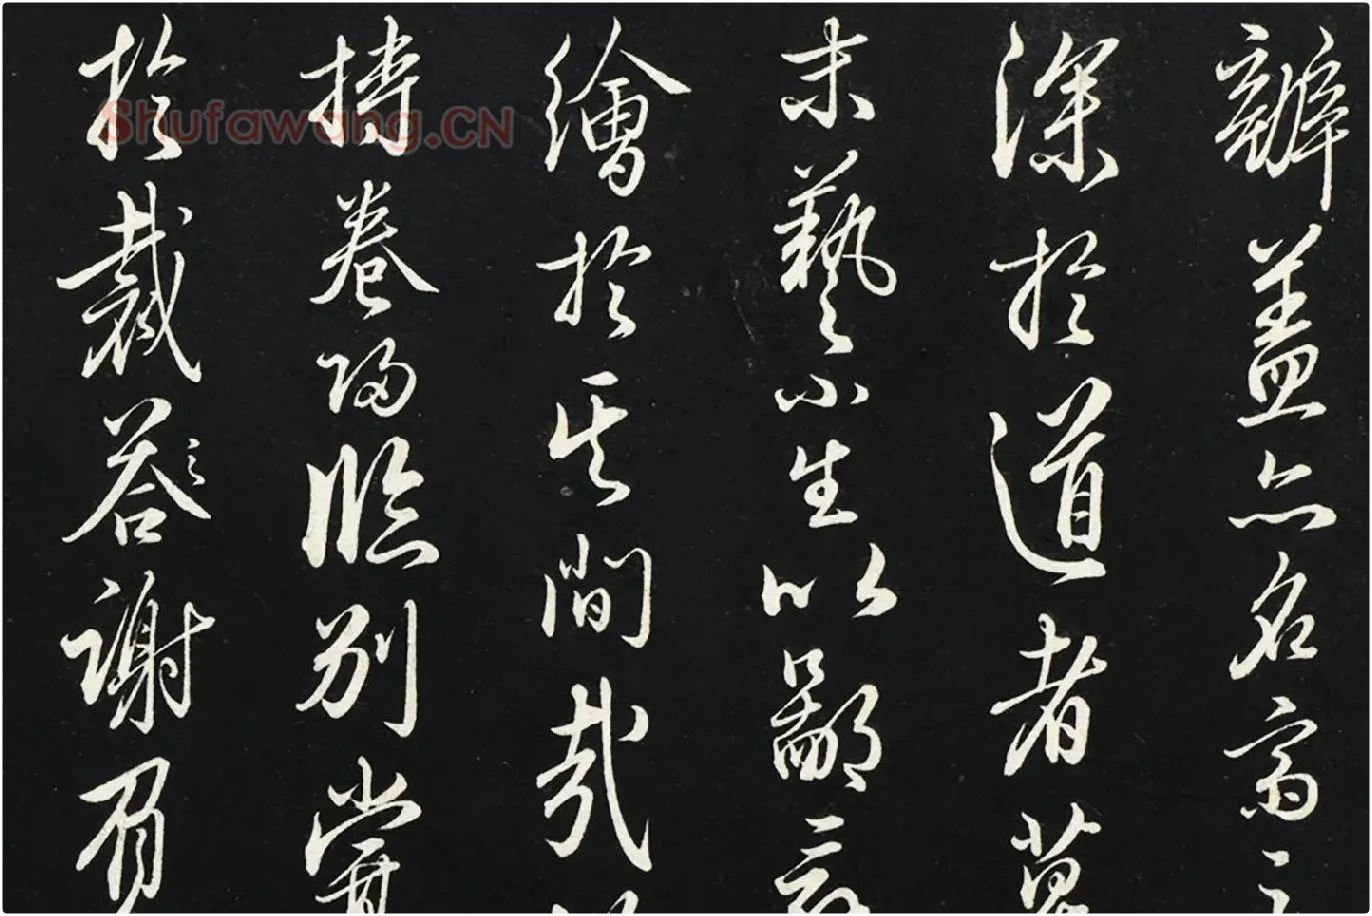 辦蓋亦名高
深於道者
末藝小生以鄙
繪於其間哉
持卷歸臨別嘗
於裁答謝
Shufawang.CN